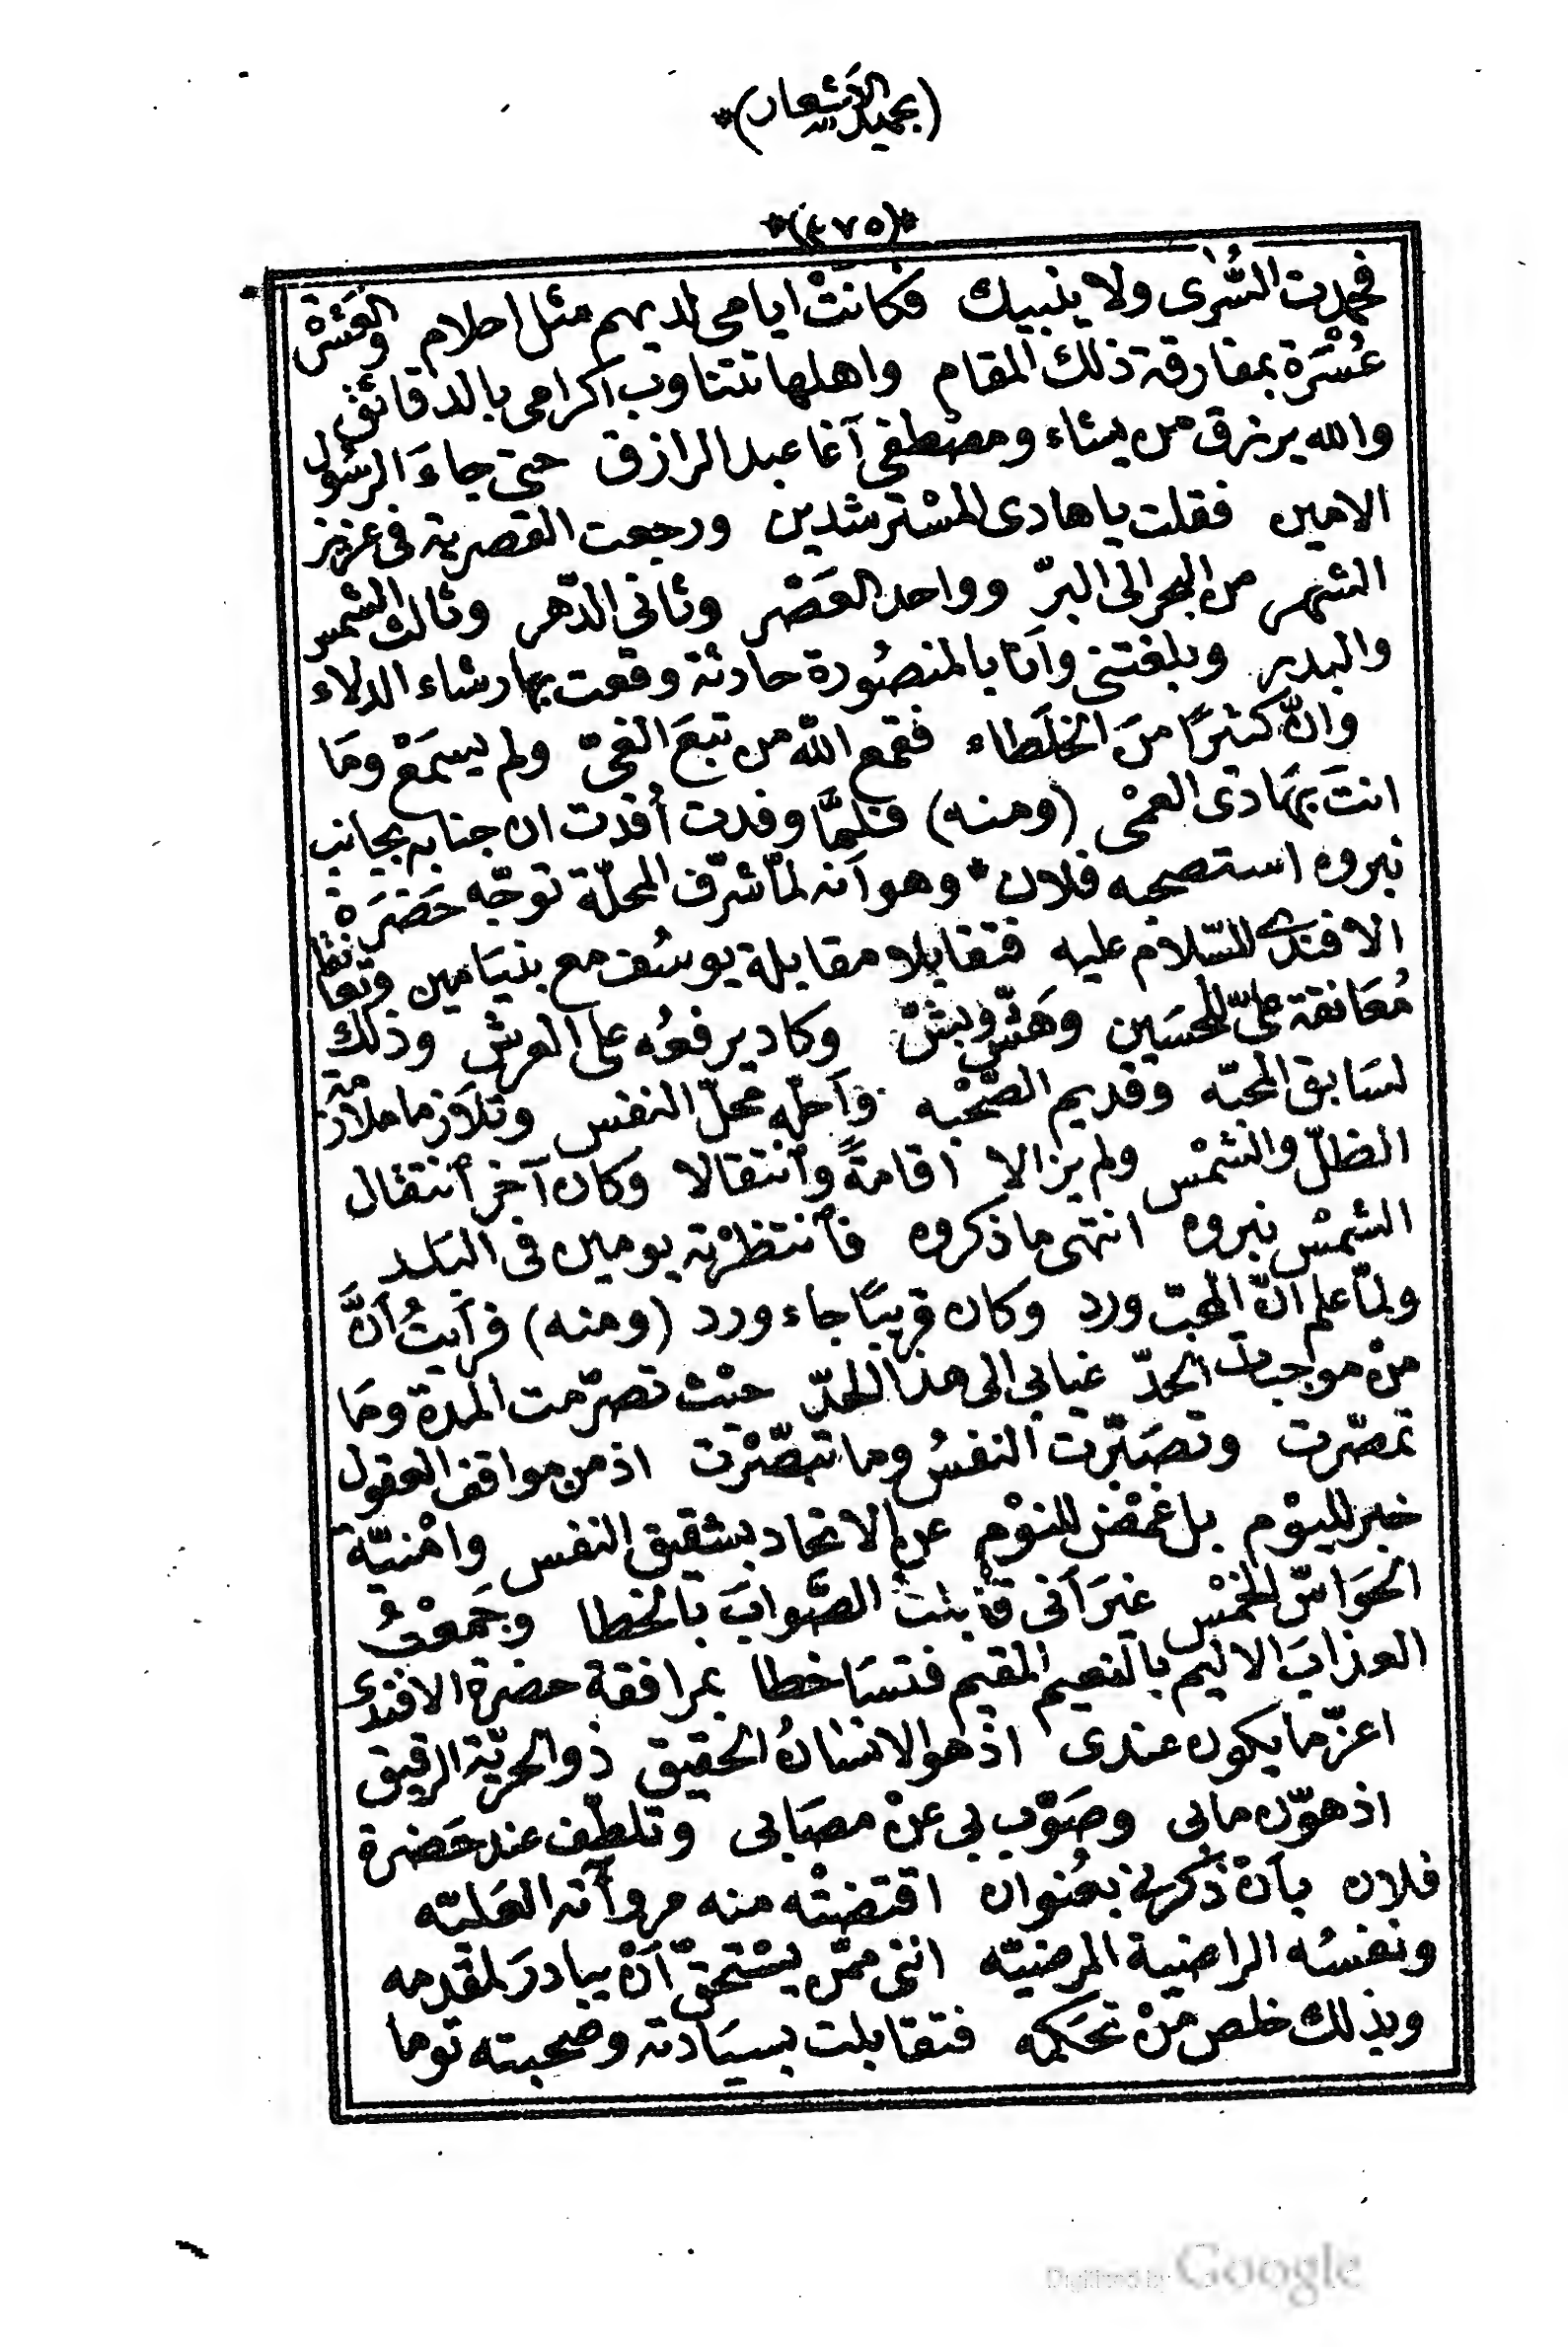 (بجميل الأشعار)*
*(٤٧٥)*
فحمدت السُّرٰى ولا ينبيك فكانَتْ ايامى لديهم مثل احلام والعَشْرَة
عُسْرَة بمفارقة ذلك المقام واهلها تتناوب اكرامى بالدقائق
والله يرزق من يشاء ومصطفى آغا عبد الرازق حتى جاءَ الرسُول
الامين فقلت يا هادى المسْترشدين ورجعت القصرية فى عزيز
الشهر من البحر الى البرّ وواحد العَصْر وثانى الدّهر وثالث الشمس
والبدر وبلغتنى وأنا بالمنصُورة حادثة وقعت بها رشاء الدلاء
وانّ كثيرًا منَ الخلَطاء فقمع الله من تبعَ الغىّ ولم يسمَعْ ومَا
انتَ بهَادى العمْى (ومنه) فلمَّا وفدت أُفدت ان جنابه بجانب
نبروه استصحبه فلان * وهو أنه لمّا شرّف المحلّة توجّه حَضْرَة
الافندى للسّلام عليه فتقابلا مقابلة يوسُف مع بنيَامين وتعانقا
مُعَانقة علىّ للحسَين وهَشّ وبشّ وكاد يرفعُه على العرش وذلك
لسَابق المحبّه وقديم الصّحْبه وأحلّه محَلّ النفس وتلَازما ملازمة
الظلّ والشمْس ولم يزالا اقامةً وٱنتقالا وكان آخر ٱنتقال
الشمسْ نبروه انتهى ما ذكروه فٱنتظرْته يومين فى البَلد
ولمّا علم انّ المحبّ ورد وكان قريبًا جاء وورد (ومنه) فرأيتُ أنَّ
منْ موجبات الجدّ غيابى الى هذا الحدّ حيْث تصرّمت المدة ومَا
تمصّرت وتصَبّرت النفسُ وما تبصّرْت اذ من مواقف العقول
خبر لليوْم بل غمْض للنوْم عن الاتحاد بشقيق النفس واهْنيّة
الحَوَاسّ الخمْس غيرَ أنى قابلت الصَّوابَ بالخطا وجَمعْتُ
العذابَ الاليم بالنعيم المقيم فتسَاخطا بمرافقة حضرة الافندى
اعزّ ما يكون عندى اذ هو الانسَانُ الحقيق ذو الحريّة الرقيق
اذ هوّن مابى وصَوّب بى عنْ مصَابى وتلطّف عند حَضرة
فلان بأن ذكرنى بعُنوان اقتضتْه منه مروأته العَليّه
ونفسُه الراضية المرضيّه اننى ممّن يسْتحقّ أنْ يبادرَ لمقدمه
وبذلك خلص منْ تحَكمه فتقابلت بسيَادته وصحبته توما